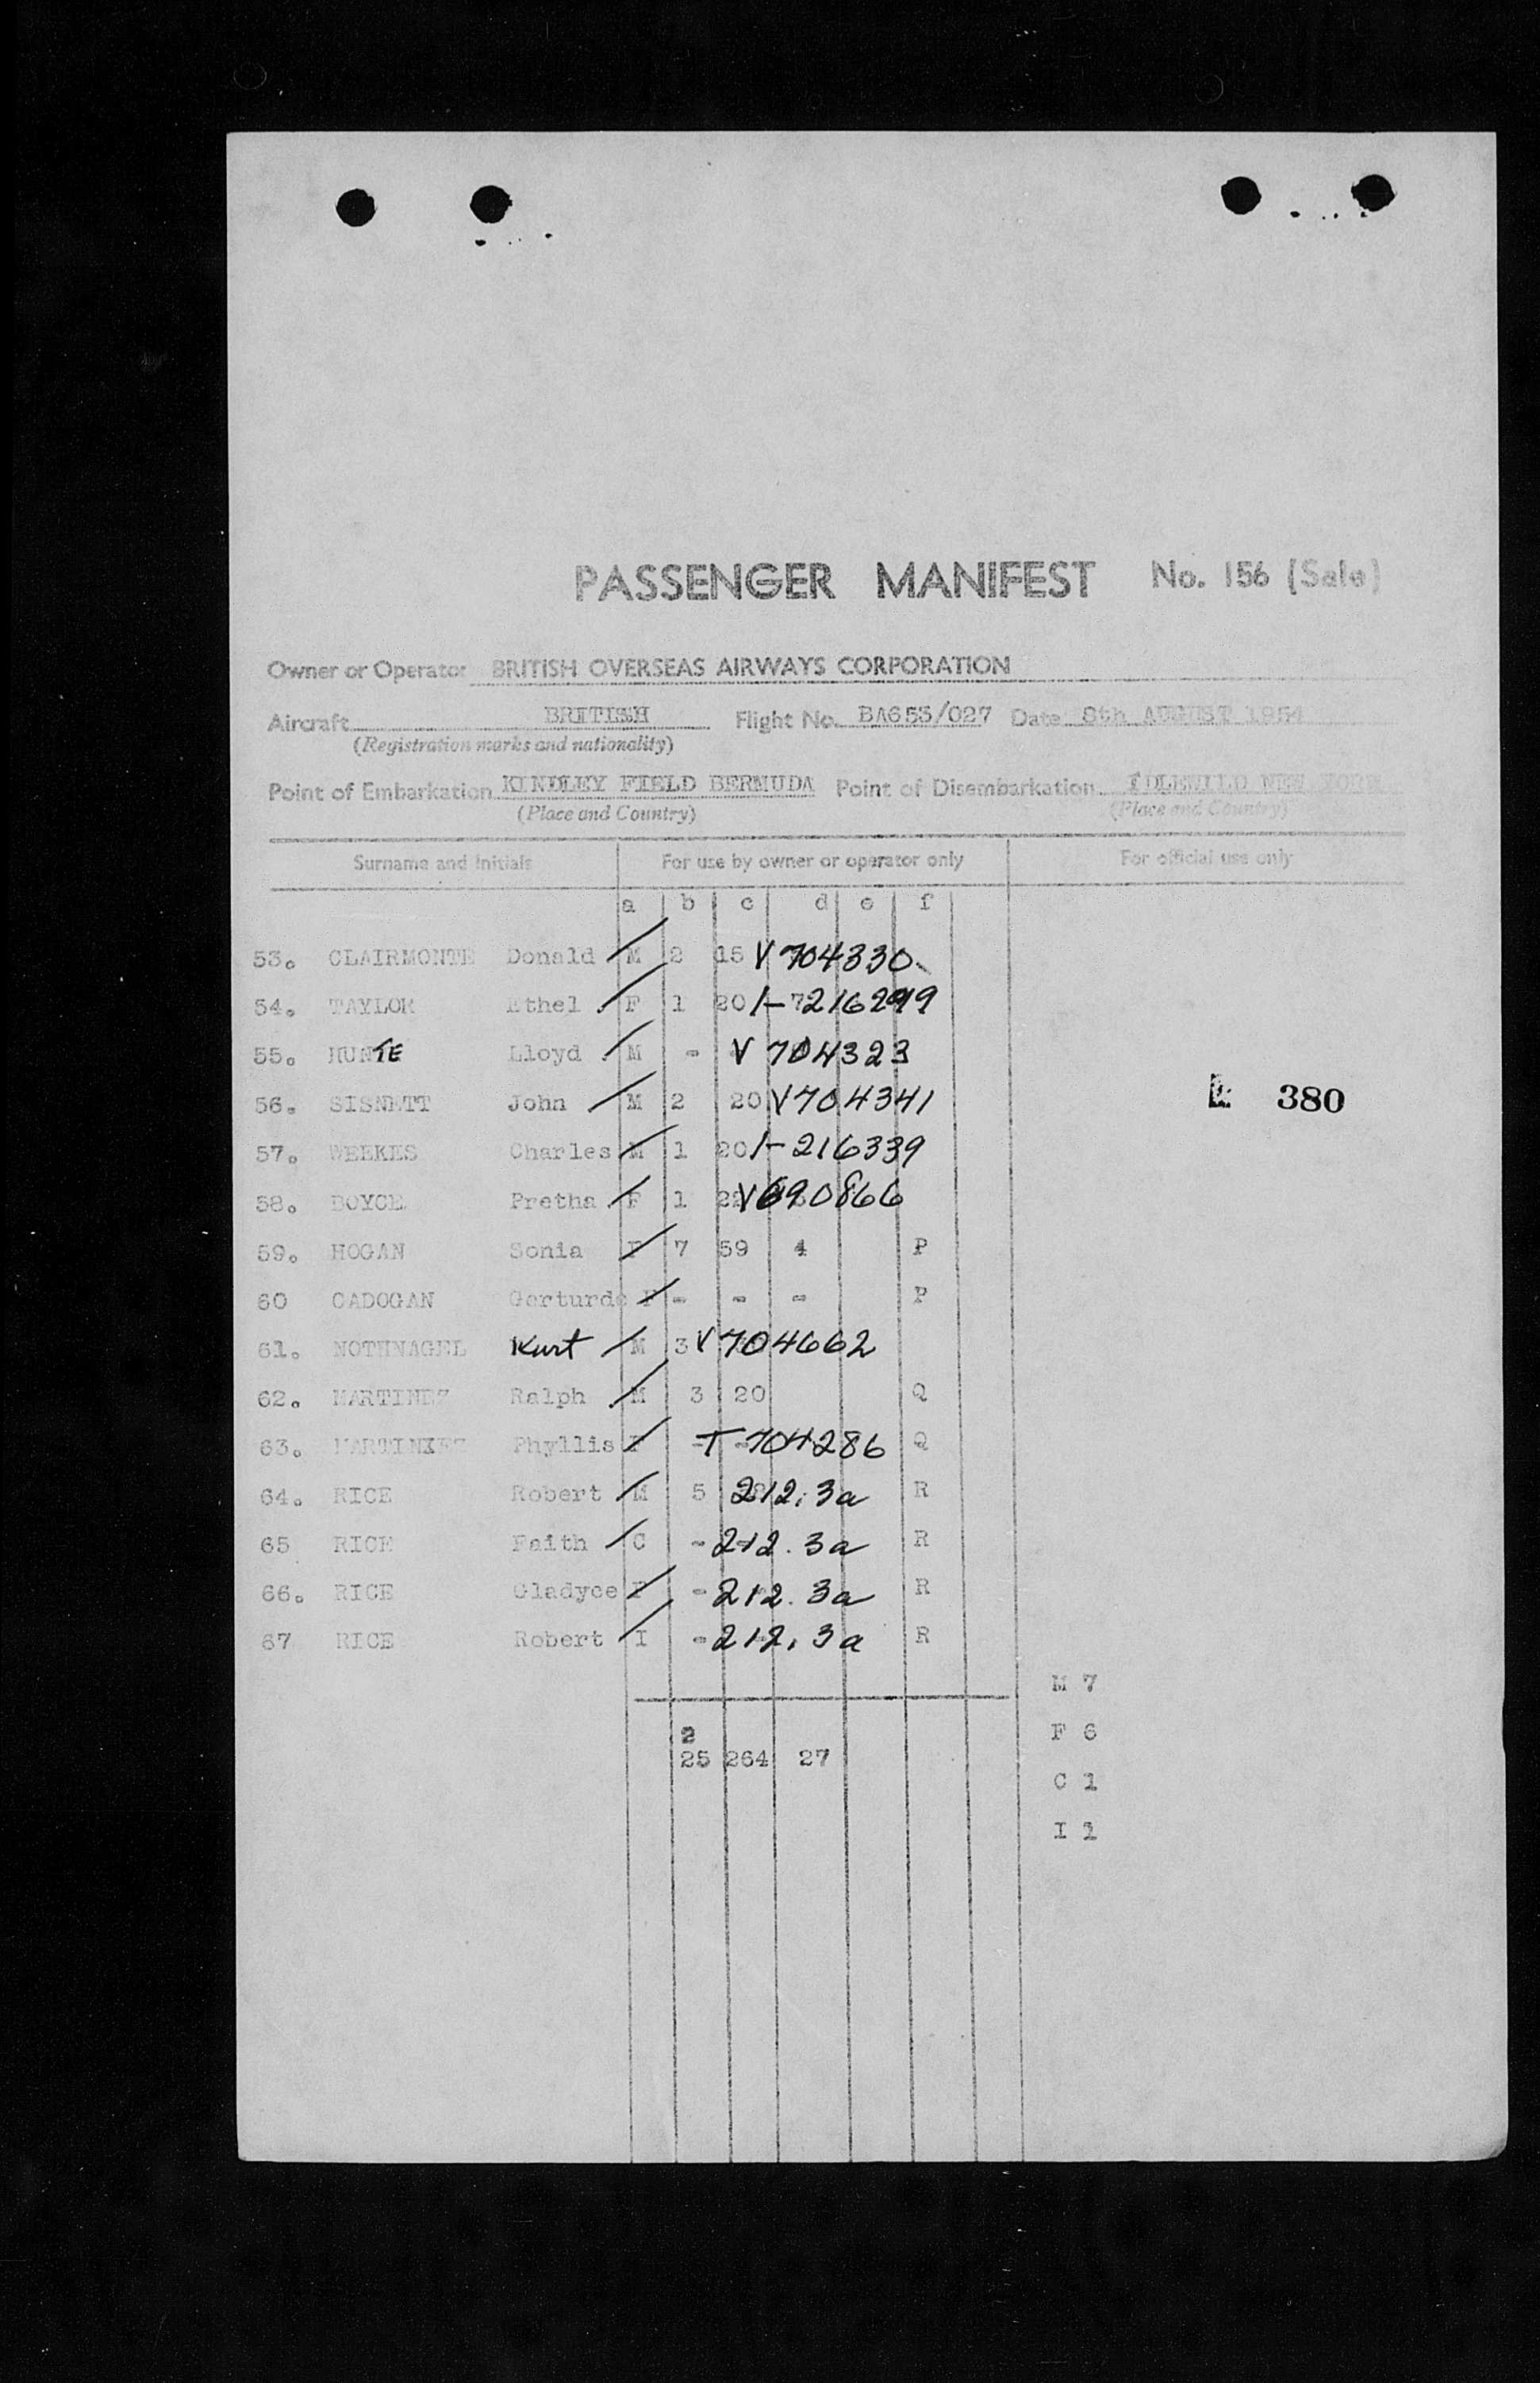 PASSENGER MANIFEST No. 156 (Sale)
Owner or Operator BRITISH OVERSEAS AIRWAYS CORPORATION
Aircraft BRITISH Flight No. BA653/027 Date 8th AUGUST 1954
(Registration marks and nationality)
Point of Embarkation KINDLEY FIELD BERMUDA Point of Disembarkation IDLEWILD NEW YORK
(Place and Country) (Place and Country)
Surname and Initials For use by owner or operator only For official use only
a b c d e f
53. CLAIRMONTE Donald M 2 15 V 704330
54. TAYLOR Ethel F 1 20 1-7216299
55. HUNTE Lloyd M - V 704323
56. SISNETT John M 2 20 V704341
380
57. WEEKES Charles M 1 20 1-216339
58. BOYCE Pretha F 1 22 V690866
59. HOGAN Sonia F 7 59 4 P
60 CADOGAN Gerturde F - - - P
61. NOTHNAGEL Kurt M 3 V704662
62. MARTINEZ Ralph M 3 20 Q
63. MARTINXEZ Phyllis F - T-704286 Q
64. RICE Robert M 5 212.3a R
65 RICE Faith C - 212.3a R
66. RICE Gladyce F - 212.3a R
67 RICE Robert I - 212.3a R
M 7
2
F 6
25 264 27
C 1
I 1